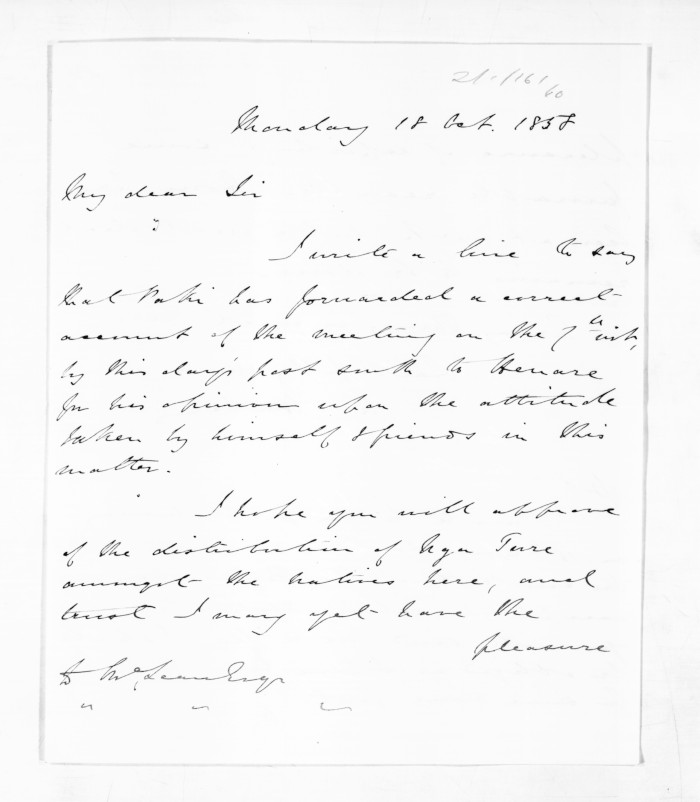 21/1/161
60
Monday 18 Oct. 1858
My dear Sir
I write a line to say
that Paki has forwarded a correct
account of the meeting on the 7th inst,
by this day's post south to Henare
for his opinion upon the attitude
taken by himself & friends in this
matter.
I hope you will approve
of the distribution of Nga Ture
amongst the natives here, and
trust I may yet have the
pleasure
McLean Esqr